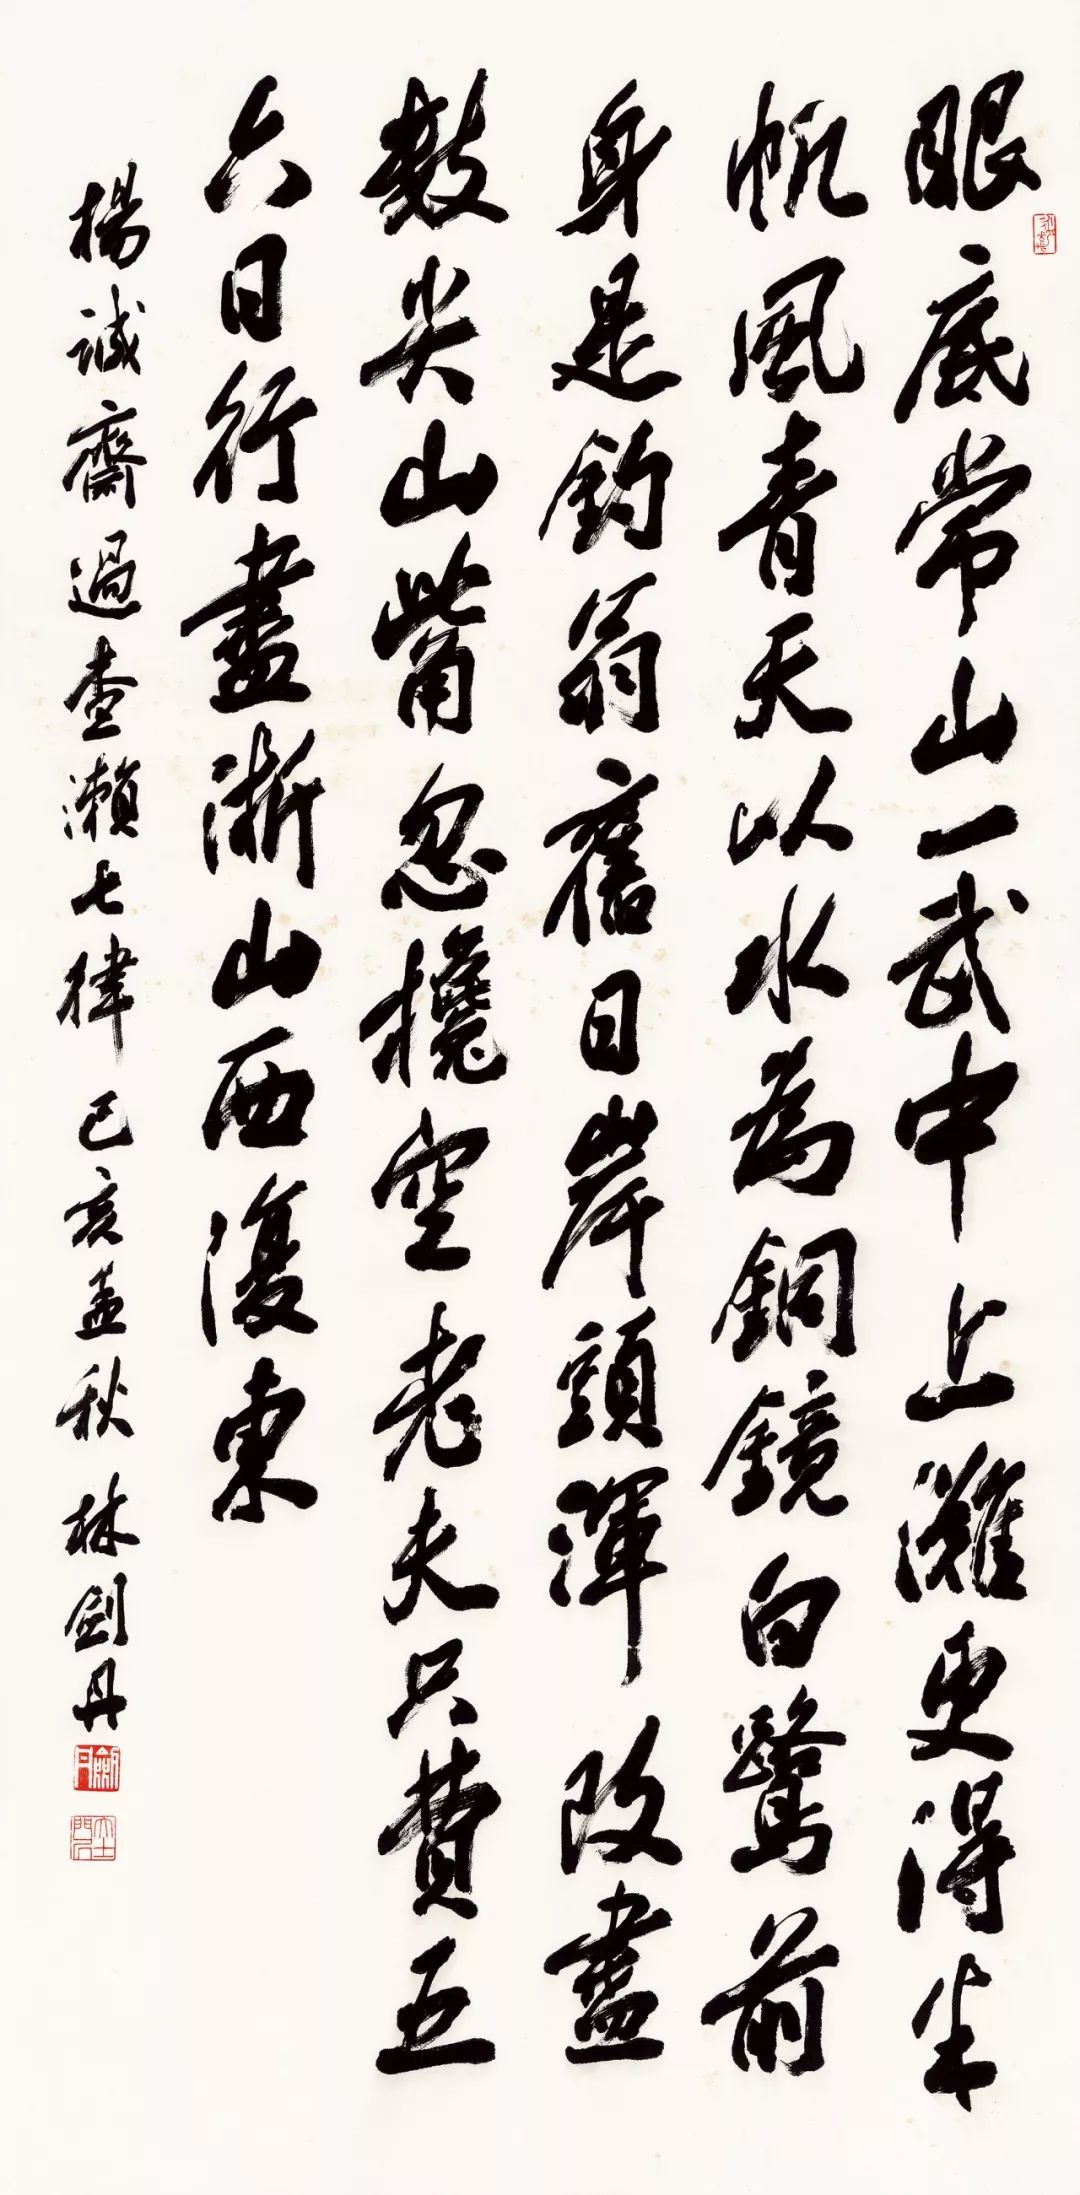 眼底常山一武中上灘更得半
帆風青天以水為銅鏡白鷺前
身是釣翁舊日岸頭渾改盡
數尖山觜忽攙空老夫只費五
六日行盡浙山西復東
楊誠齋過查瀨七律己亥孟秋林劍丹